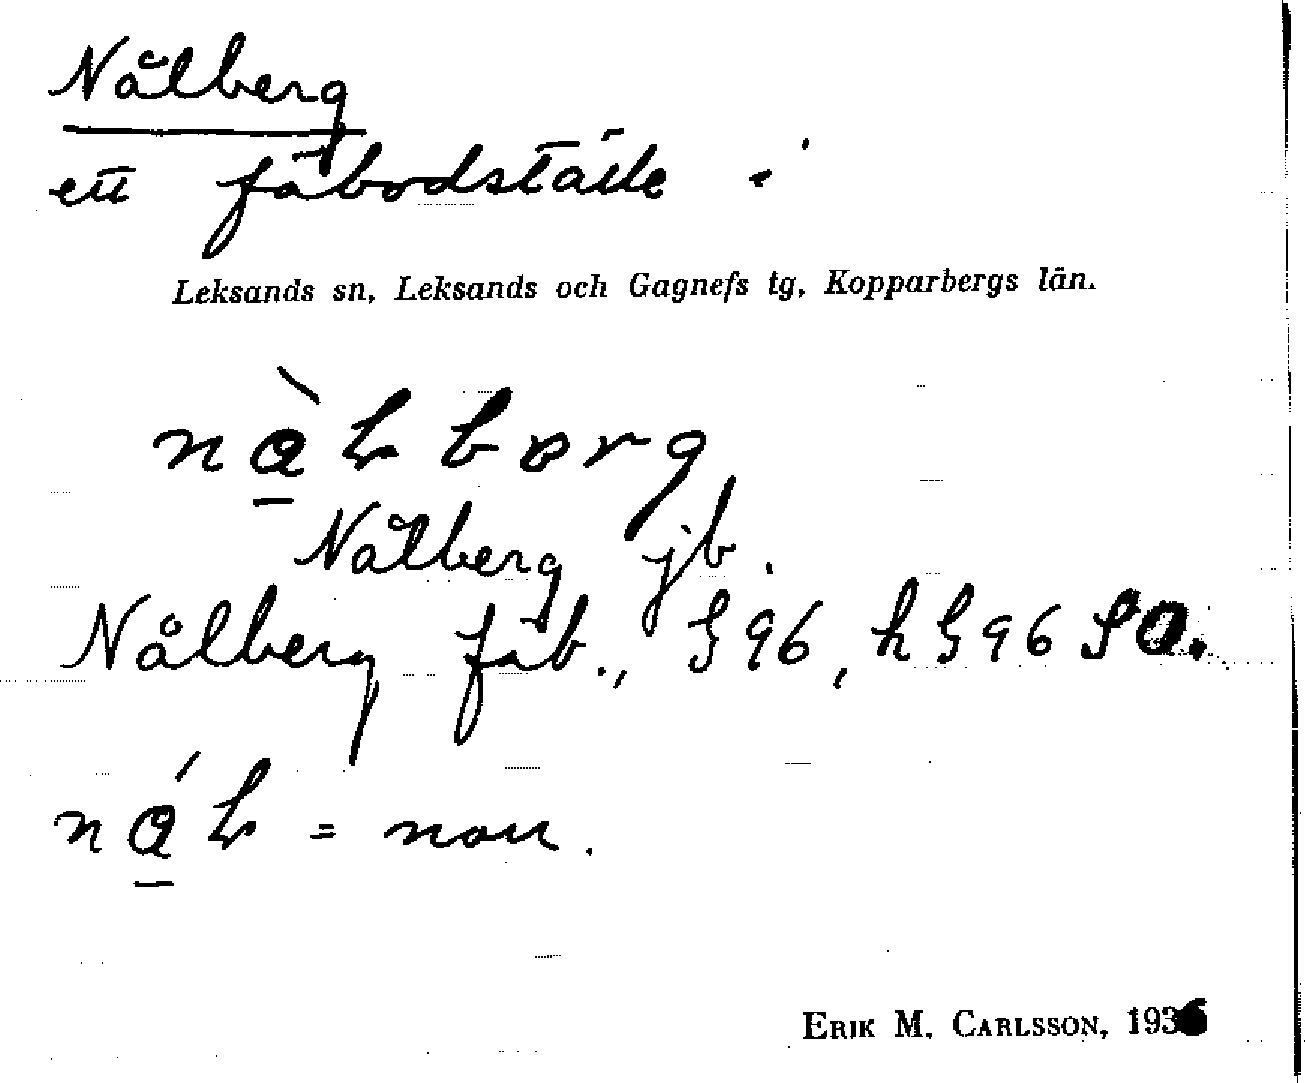 Nålberg
ett fäbodställe i
Leksands sn, Leksands och Gagnefs tg, Kopparbergs län.
Nålberg jb.
Nålberg fäb., § 96, h § 96 SO.
= non.
ERIK M. CARLSSON, 1936